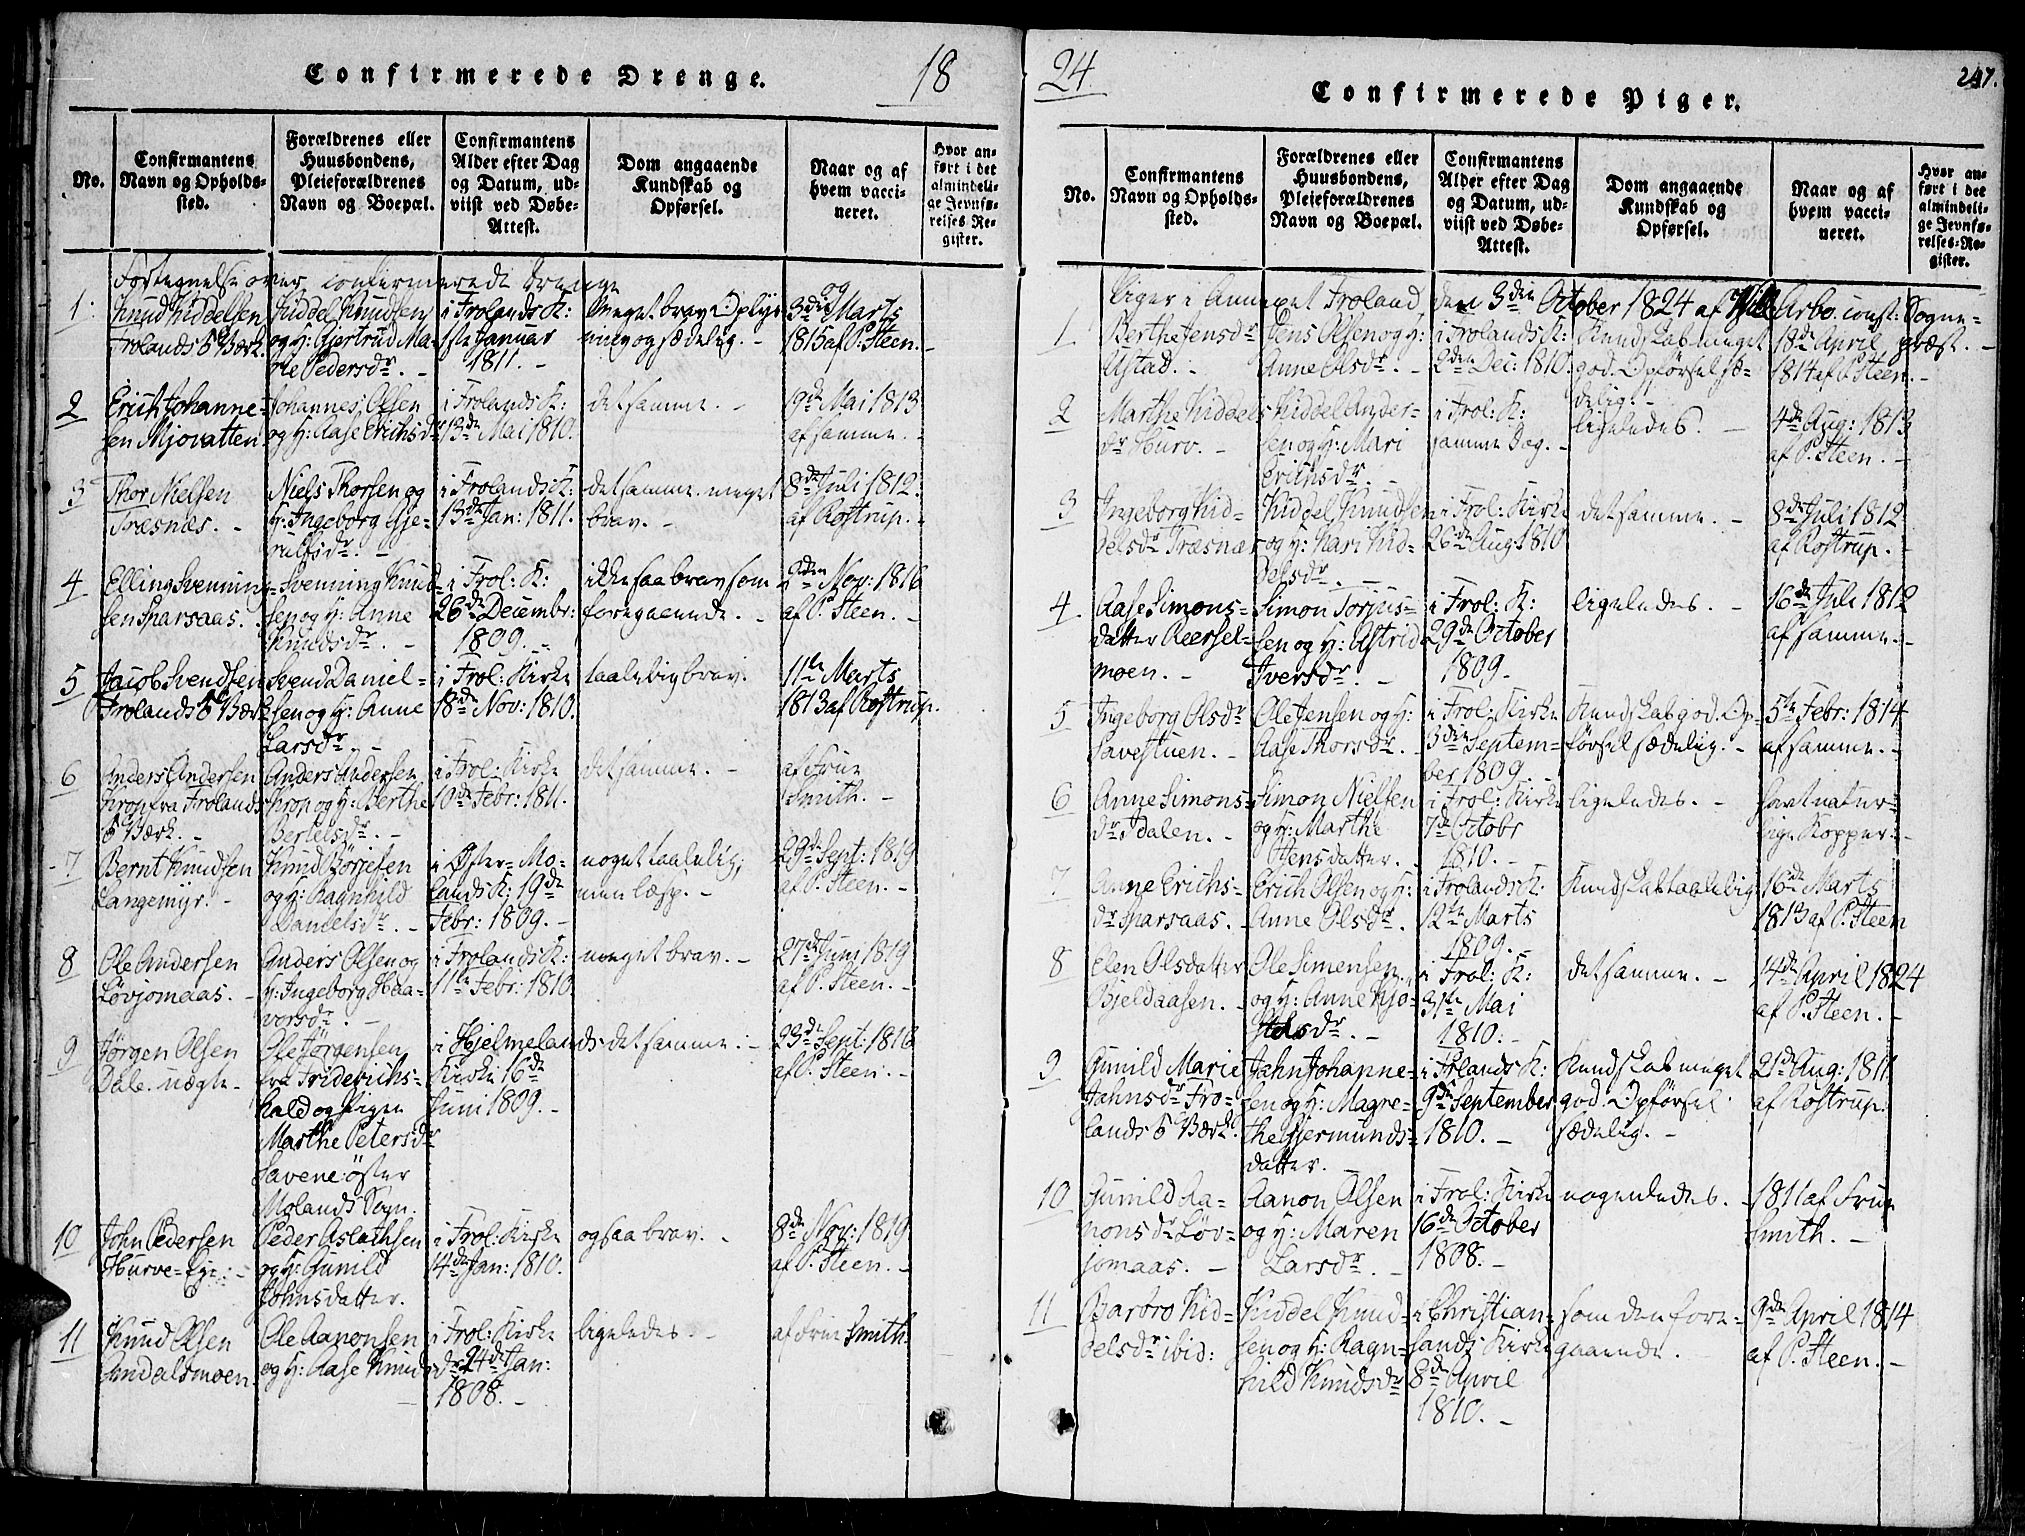 Confirmerede Drenge.
18
No.
Confirmantens
Navn og Opholds-
sted.
Forældrenes eller
Huusbondens,
Pleieforældrenes
Navn og Boepæl.
Confirmantens
Alder efter Dag
og Datum, ud-
viist ved Døbe-
Attest.
Dom angaaende
Kundskab og
Opførsel.
Naar og af
hvem vacci-
neret.
Hvor an-
ført i det
almindeli-
ge Jevnfø-
relses Re-
gister.
Fortegnelse over confirmerede Drenge og
1.
Knud Kiddelsen
Frolands Værk.
Kiddel Knudsen
og H: Gjertrud Ma-
rie Pedersdr. -
i Frolands K:
1ste Januar
1811. -
Meget brav Oplys-
ning og sædelig. -
3die Marts
1815 af P. Steen. -
2
Erich Johanne-
sen Mjovatten
Johannes Olsen
og H: Aase Erichsdr
i Frolands K:
13de Mai 1810.
det samme. -
19de Mai 1813
af samme. -
3
Thor Nielsen
Træsnæs. -
Niels Thorsen og
H: Ingeborg Gje-
rulfsdr. -
i Frolands K:
13de Jan: 1811.
det samme. meget
brav. -
8de Juli 1812.
af Rostrup. -
4
Elling Svenning-
sen Sparsaas.
Svenning Knud-
sen og H: Anne
Knudsdr. -
i Frol: K:
26de Decembr:
1809. -
ikke saa brav som
foregaaende. -
2den Nov: 1816
af P. Steen. -
5
Jacob Svendsen
Frolands Værk
Svend Daniel-
sen og H: Anne
Larsdr. -
i Frol: Kirke
18de Nov: 1810.
taalelig brav.
11te Marts
1813 af Rostrup.
6
Anders Andersen
Krop fra Frolands
Værk. -
Anders Andersen
Krop og H: Berthe
Bertelsdr. -
i Frol: Kirke
10de Febr: 1811.
det samme. -
af Frue
Smith. -
7
Bernt Knudsen
Langemyr. -
Knud Börjesen
og H: Ragnhild
Danielsdr. -
i Öster-Mo-
lands K: 19de
Febr: 1809. -
noget taalelig;
men læsp. -
29de Sept: 1819
af P. Steen. -
8
Ole Andersen
Lövjomaas. -
Anders Olsen og
H: Ingeborg Haa-
vorsdr. -
i Frolands K:
11te Febr: 1810
meget brav. -
27de Juni 1819
af P. Steen. -
9
Jörgen Olsen
Dale. uægte -
Ole Jörgensen
fra Friderichs-
hald og Pigen
Marthe Petersdr
Savene öster
Molands Sogn.
i Hjelmelands
Kirke 16de
Juni 1809. -
det samme. -
23de Sept: 1816
af P. Steen. -
10
John Pedersen
Hurve-Eje: -
Peder Aslachsen
og H: Gunild
Johnsdatter.
i Frol: Kirke
14de Jan: 1810.
ogsaa brav. -
8de Nov: 1819
af P. Steen. -
11
Knud Olsen
Sindalsmoen.
Ole Aanonsen
og H: Aase Knudsdr
i Frol: Kirke
24de Jan:
1808. -
ligeledes. -
af Frue Smith.
24.
Confirmerede Piger.
247.
No.
Confirmantens
Navn og Opholds-
sted.
Forældrenes eller
Huusbondens,
Pleieforældrenes
Navn og Boepæl.
Confirmantens
Alder efter Dag
og Datum, ud-
viist ved Døbe-
Attest.
Dom angaaende
Kundskab og
Opførsel.
Naar og af
hvem vacci-
neret.
Hvor an-
ført i det
almindeli-
ge Jevnfø-
relses-Re-
gister.
Piger i Annexet Froland, den 3die October 1824 af Arbo const: Sogne-
præst. -
1
Berthe Jensdr
Ustad. -
Jens Olsen og H:
Anne Olsdr. -
i Frolands K:
2den Dec: 1810.
Kundskab meget
god. Opförsel sæ-
delig. -
18de April
1814 af P. Steen. -
2
Marthe Kiddels-
dr Hurv. -
Kiddel Ander-
sen og H: Mari
Erichsdr. -
i Frol: K:
samme Dag. -
ligeledes. -
4de Aug: 1813
af P. Steen. -
3
Ingeborg Kid-
delsdr Træsnæs
Kiddel Knudsen
og H: Kari Kid-
delsdr. -
i Frol: Kirke
26de Aug: 1810
det samme. -
8de Juli 1812
af Rostrup. -
4
Aase Simons-
datter Reersel-
moen. -
Simon Torjus-
sen og H: Astrid
Iversdr. -
i Frol: K:
29de October
1809. -
ligeledes. -
16de Juli 1812
af samme. -
5
Ingeborg Olsdr
Savestuen. -
Ole Jensen og H:
Aase Thorsdr. -
i Frol: Kirke
3die Septem-
ber 1809. -
Kundskab god. Op-
försel sædelig. -
5te Febr: 1814
af samme. -
6
Anne Simons-
dr Dalen. -
Simon Nielsen
og H: Marthe
Jensdatter. -
i Frol: Kirke
7de Octobr
1810. -
ligeledes. -
havt natur-
lige Kopper. -
7
Anne Erichs-
dr Sparsaas. -
Erich Olsen og H:
Anne Olsdr. -
i Frolands K:
12te Marts
1809. -
Kundskab taalelig.
16de Marts
1813 af P. Steen
8
Elen Olsdatter
Bjeldaasen. -
Ole Simensen
og H: Anne Kjö-
stelsdr. -
i Frol: K:
31te Mai
1810. -
det samme. -
14de April 1824
af P. Steen. -
9
Gunild Marie
Jahnsdr Fro-
lands Værk.
Jahn Johanne-
sen og H: Magre-
the Gjermunds-
datter. -
i Frolands K:
9de September
1810. -
Kundskab meget
god. Opförsel
sædelig. -
21de Aug: 1811.
af Rostrup.
10
Gunild Aa-
nonsdr Löv-
jomaas. -
Aanon Olsen
og H: Maren
Larsdr. -
i Frol: Kirke
16de October
1808. -
nogenledes. -
1811 af Frue
Smith. -
11
Barbro Kid-
delsdr ibid:
Kiddel Knud-
sen og H: Ragn-
hild Knudsdr
i Christian-
sands Kirke
8de April
1810. -
som den fore-
gaaende. -
9de April 1814
af P. Steen. -